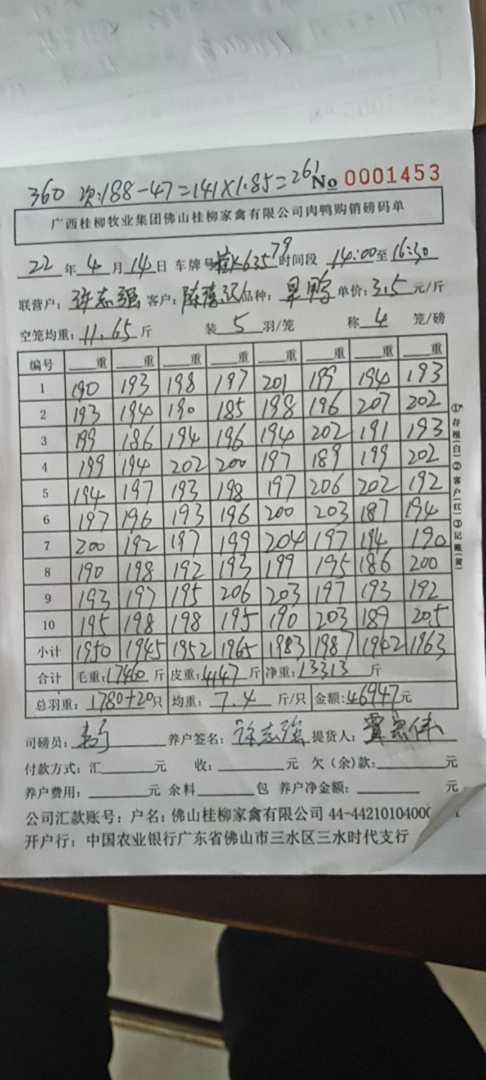 360 次:188-47=141×1.85=261
No 0001453
广西桂柳牧业集团佛山桂柳家禽有限公司肉鸭购销磅码单
22 年 4 月 14 日 车牌号 K63579 时间段 14:00 至 16:30
联营户: 许志强 客户: 品种: 旱鸭 单价: 3.5 元/斤
空笼均重: 11.65 斤 装 5 羽/笼 称 4 笼/磅
编号 重 重 重 重 重 重 重 重
1 190 193 198 197 201 199 194 193
2 193 194 190 185 198 196 207 202
3 199 186 194 196 194 202 191 193
4 199 194 202 200 197 189 199 202
5 194 197 193 198 197 206 202 192
6 197 196 193 196 200 203 187 194
7 200 192 197 199 204 197 194 190
8 190 198 192 193 199 195 186 200
9 193 197 195 206 203 197 193 192
10 195 198 198 195 190 203 189 205
小计 1950 1945 1952 1965 1983 1987 1942 1963
合计 毛重: 17460 斤 皮重: 4147 斤 净重: 13313 斤
总羽重: 1780+20 只 均重: 7.4 斤/只 金额: 46947 元
司磅员: 养户签名: 许志强 提货人:
付款方式: 汇 元 收: 元 欠(余)款: 元
养户费用: 元 余料 包 养户净金额: 元
公司汇款账号: 户名: 佛山桂柳家禽有限公司 44-4421010400
开户行: 中国农业银行广东省佛山市三水区三水时代支行
①存根(白)②客户(红)③记账(黄)